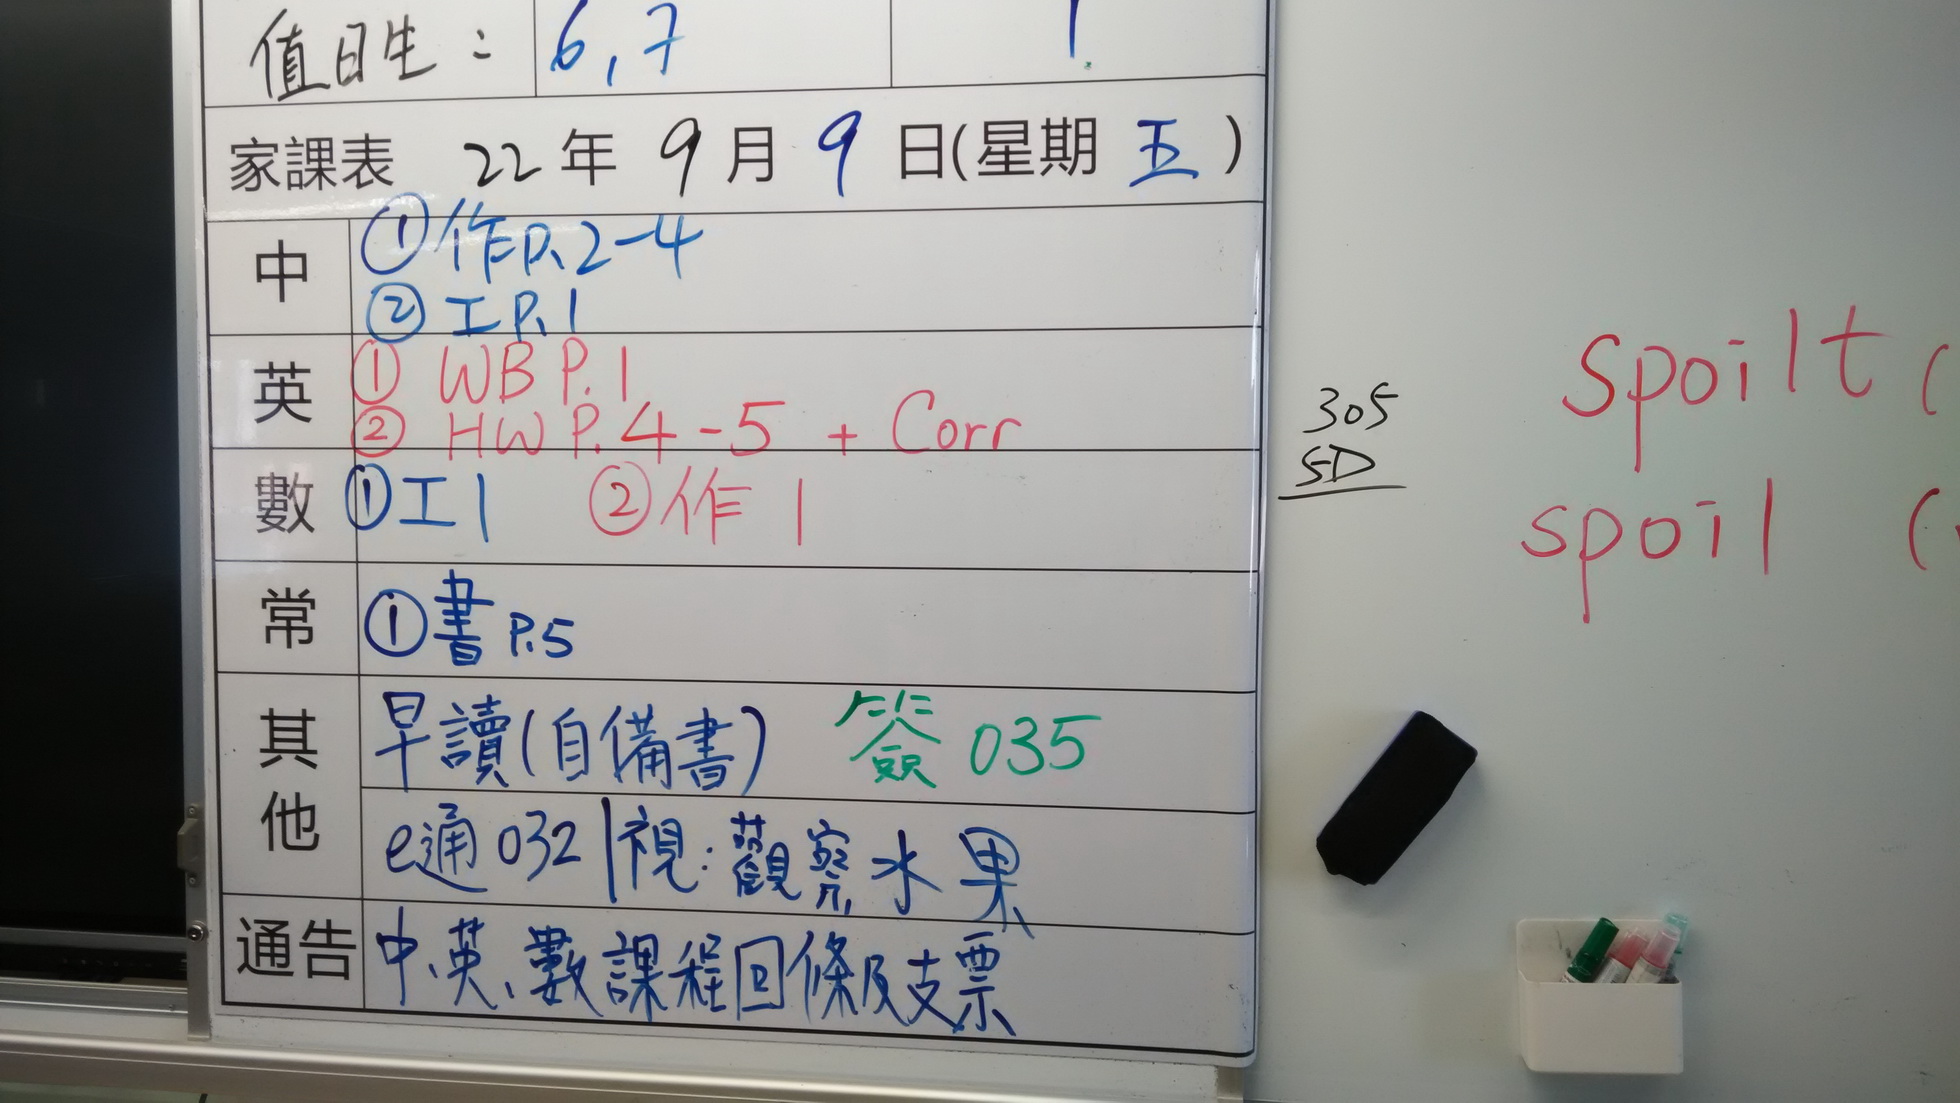 值日生： 6,7 1
家課表 22年 9月 9日(星期 五)
中 ①作P.2-4
② 工P.1
英 ① WB P.1
② HW P.4-5 + Corr
數 ①工1 ②作1
常 ①書P.5
其他 早讀(自備書) 簽 035
e通032|視:觀察水果
通告 中、英、數課程回條及支票
305
5D
spoilt (
spoil (